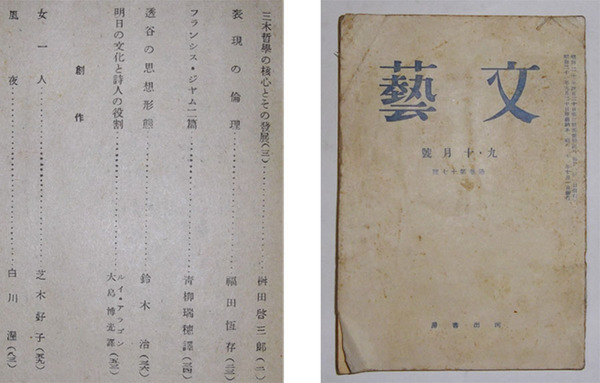 三木哲學の核心とその發展(三)……桝田啓三郎
表現の倫理……福田恆存
フランシス・ジャム二篇……青柳瑞穗譯
透谷の思想形態……鈴木治
明日の文化と詩人の役割……ルイ・アラゴン
大島博光譯
創作
女一人……芝木好子
風夜……白川渥
文藝
九・十月號
河出書房